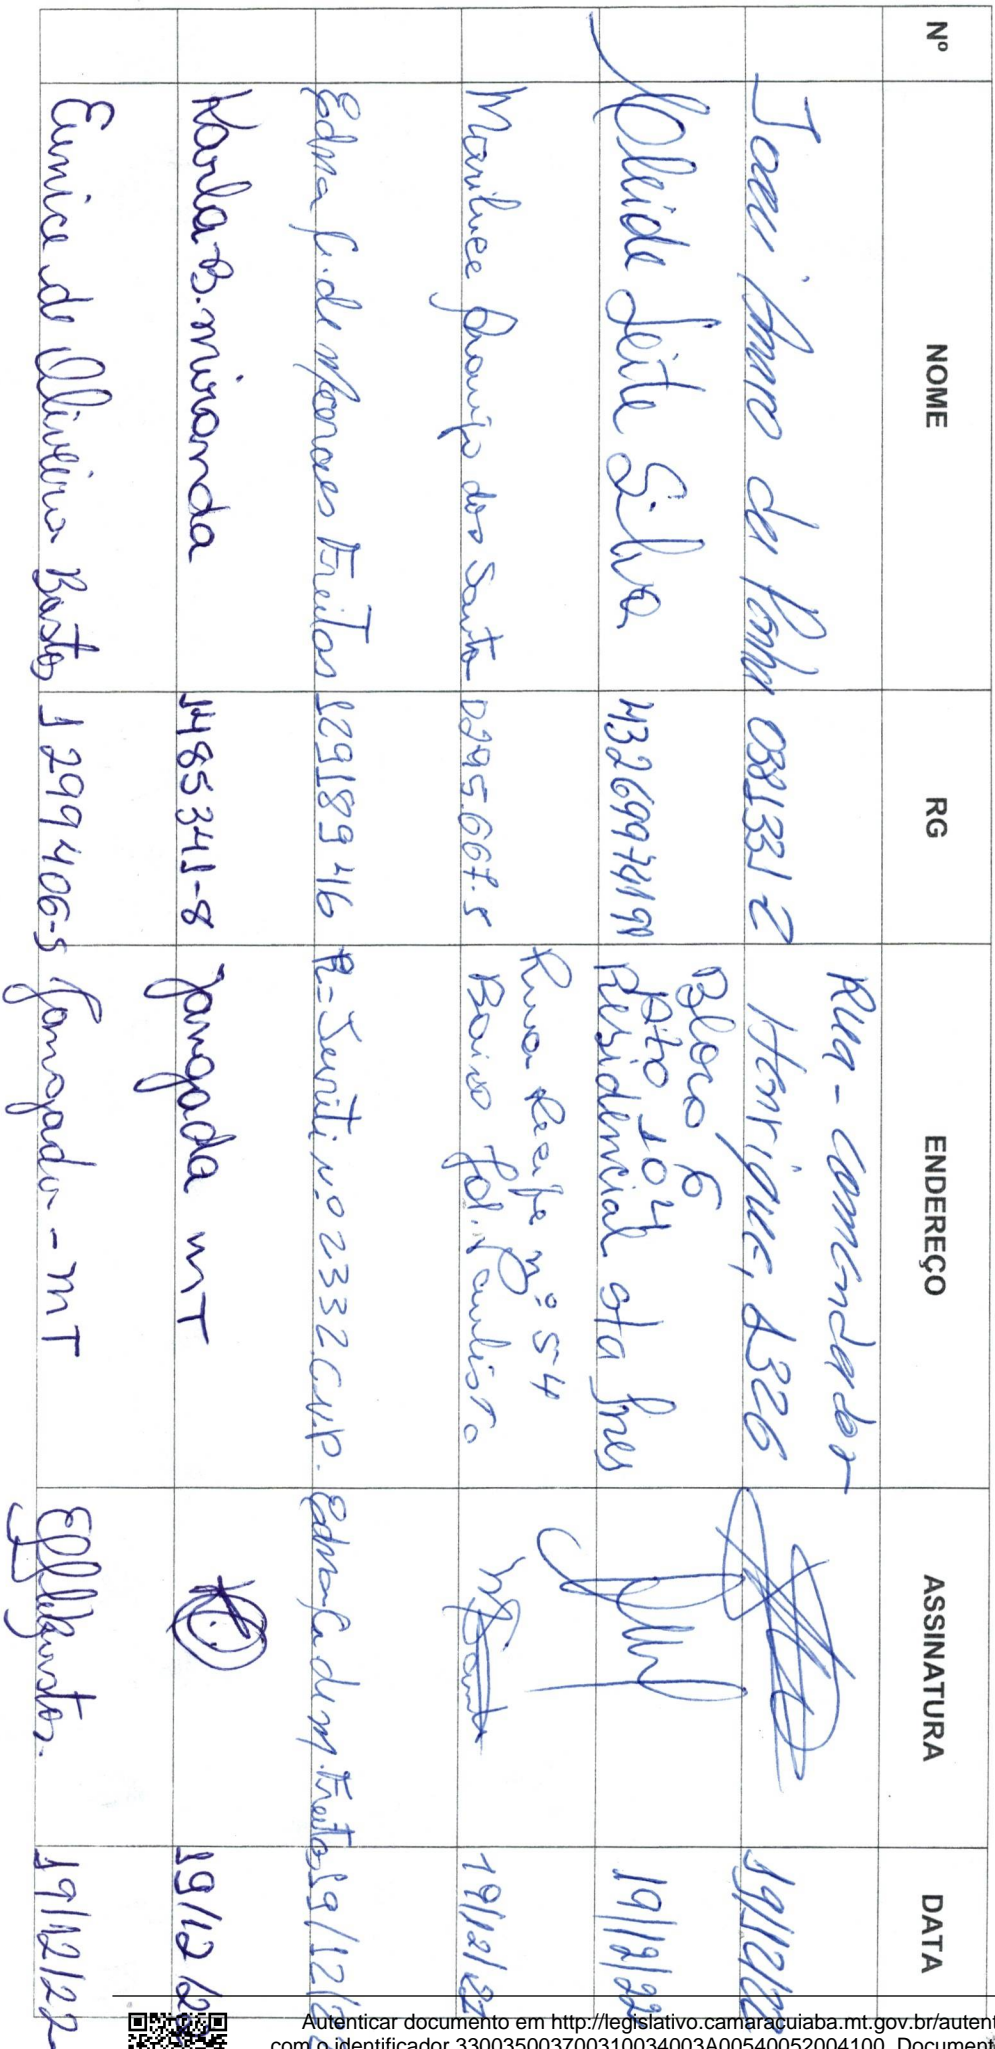 Nº NOME RG ENDEREÇO ASSINATURA DATA
Joaci da 0381331-2 Rua - Comendador
Henrique, 1326 19/12/22
Cleide Leite Silva Bloco 6
Apto 104
Residencial sta Ines 19/12/22
Mariluce Araujo dos Santo 0295.667.5 Rua Recife nº 54
Bairro Jd. Paulista 19/12/22
Edna C. de Moraes Freitas 12918946 R= Juriti nº 2332 C.V.P. Edna C. de M. Freitas 19/12/2
Karla B. miranda 1485341-8 Jangada MT 19/12/2
Eunice de Oliveira Bastos 1299406-5 Jangada - MT 19/12/22
Autenticar documento em http://legislativo.camaracuiaba.mt.gov.br/autent
com o identificador 330035003700310034003A00540052004100, Document